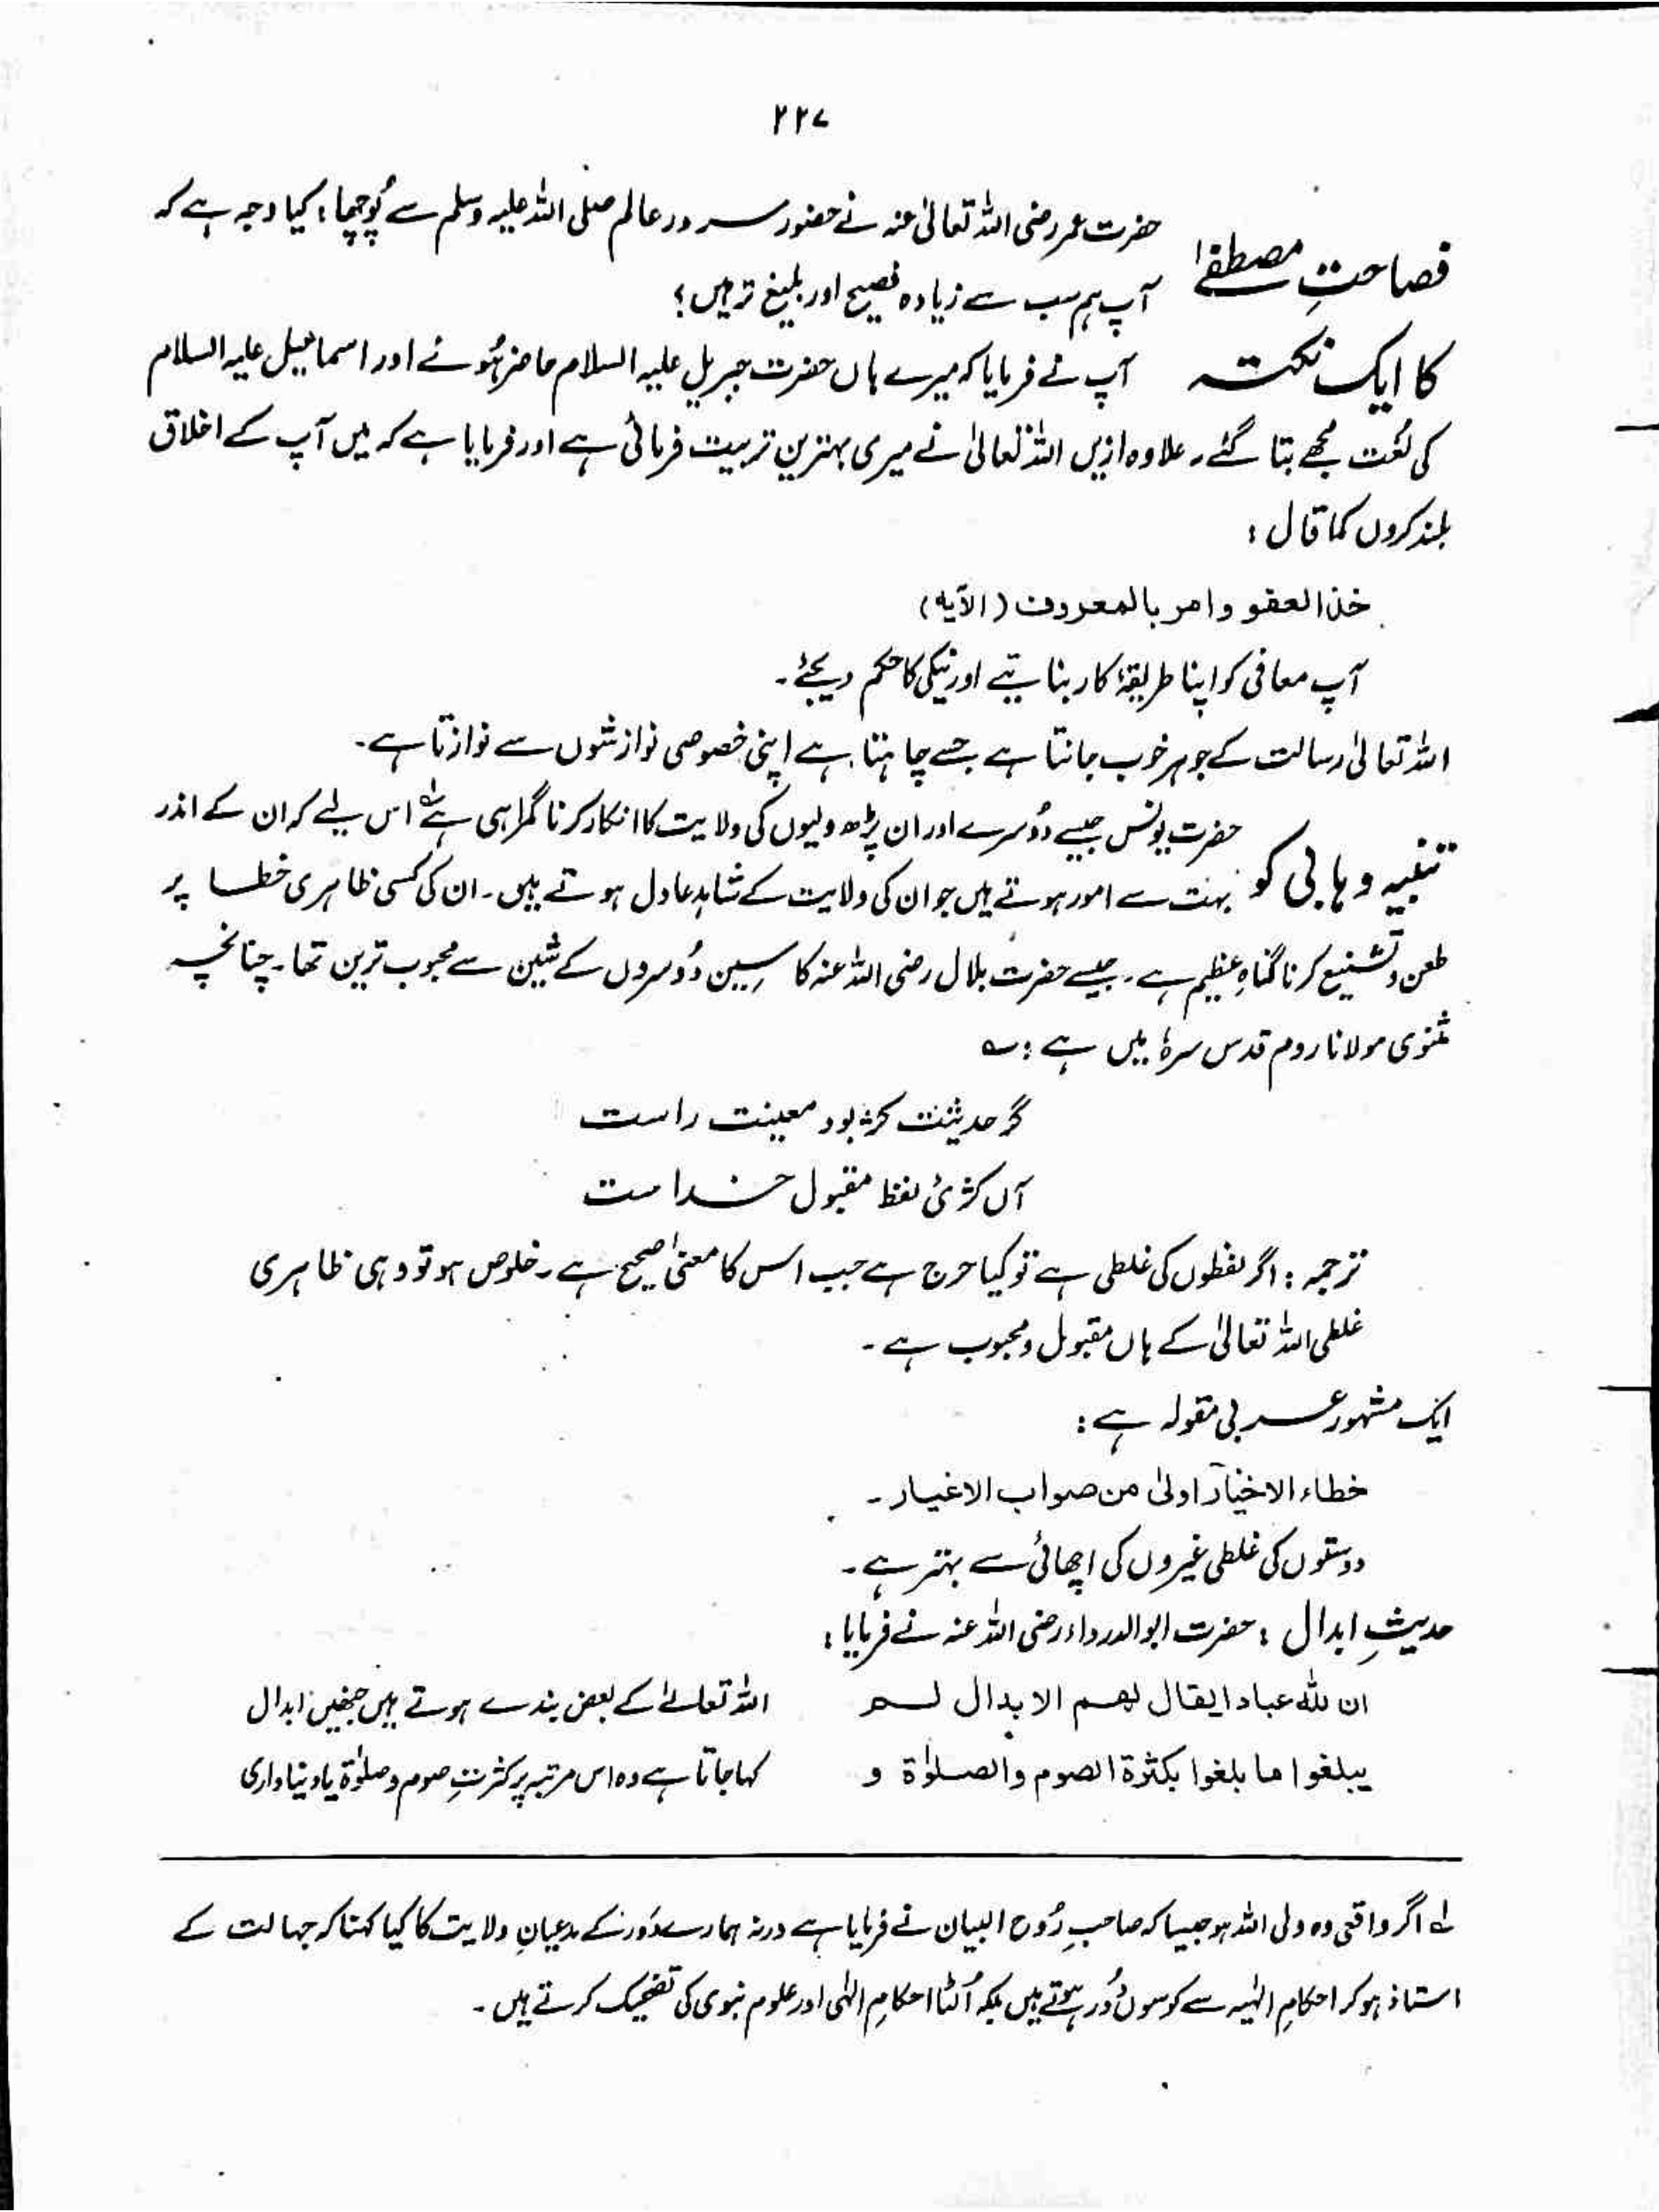 ۲۲۷
فصاحتِ مصطفےٰ حضرت عمر رضی اللہ تعالیٰ عنہ نے حضور سرور عالم صلی اللہ علیہ وسلم سے پُوچھا؛ کیا وجہ ہے کہ
آپ ہم سب سے زیادہ فصیح اور بلیغ تر ہیں؟
کا ایک نکتہ آپ نے فرمایا کہ میرے ہاں حضرت جبریل علیہ السلام حاضر ہُوئے اور اسماعیل علیہ السلام
کی لُغت مجھے بتا گئے۔ علاوہ ازیں اللہ تعالیٰ نے میری بہترین تربیت فرمائی ہے اور فرمایا ہے کہ میں آپ کے اخلاق
بلند کروں کما قال :
خذ العفو وامر بالمعروف (الآیہ)
آپ معافی کو اپنا طریقۂ کار بنائیے اور نیکی کا حکم دیجئے۔
اللہ تعالیٰ رسالت کے جوہر خوب جانتا ہے جسے چاہتا ہے اپنی خصوصی نوازشوں سے نوازتا ہے۔
تنبیہ وہابی کو حضرت یونس جیسے دُوسرے اور ان پڑھ ولیوں کی ولایت کا انکار کرنا گمراہی ہے لہ اس لیے کہ ان کے اندر
بہت سے امور ہوتے ہیں جو ان کی ولایت کے شاہدِ عادل ہوتے ہیں۔ ان کی کسی ظاہری خطا پر
طعن و تشنیع کرنا گناہِ عظیم ہے۔ جیسے حضرت بلال رضی اللہ عنہ کا سِین دُوسروں کے شین سے محبوب ترین تھا۔ چنانچہ
مثنوی مولانا روم قدس سرہٗ میں ہے : ؎
گر حدیثت کژ بود معینت راست
آں کژئ لفظ مقبول خداست
ترجمہ : اگر لفظوں کی غلطی ہے تو کیا حرج ہے جب اس کا معنیٰ صحیح ہے۔ خلوص ہو تو وہی ظاہری
غلطی اللہ تعالیٰ کے ہاں مقبول و محبوب ہے۔
ایک مشہور عربی مقولہ ہے :
خطاء الاخیار اولیٰ من صواب الاغیار۔
دوستوں کی غلطی غیروں کی اچھائی سے بہتر ہے۔
حدیثِ ابدال : حضرت ابوالدرداء رضی اللہ عنہ نے فرمایا :
ان للہ عبادا یقال لھم الابدال لم اللہ تعالےٰ کے بعض بندے ہوتے ہیں جنھیں ابدال
یبلغوا ما بلغوا بکثرۃ الصوم والصلوٰۃ و کہا جاتا ہے وہ اس مرتبہ پر کثرتِ صوم و صلوٰۃ یا دنیاداری
لہ اگر واقعی وہ ولی اللہ ہو جیسا کہ صاحبِ رُوح البیان نے فرمایا ہے ورنہ ہمارے دَور کے مدعیانِ ولایت کا کیا کہنا کہ جہالت کے
استاذ ہو کر احکامِ الٰہیہ سے کوسوں دُور ہوتے ہیں بلکہ اُلٹا احکامِ الٰہی اور علوم نبوی کی تضحیک کرتے ہیں۔